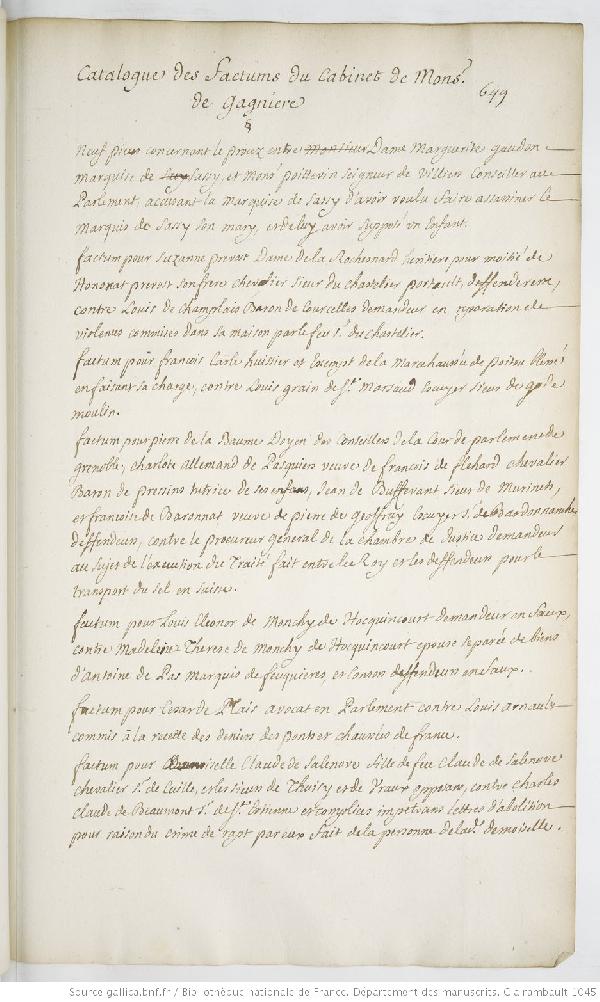 Catalogue des factums du Cabinet de Mons.r
de gagniere
649
Neuf pieces concernant le procez entre monsieur Dame Marguerite gaudon
marquise de Sassy, et Mons.r poittevin seigneur de Villiers Conseiller au
Parlement, accusant la Marquise de Sassy d'avoir voulu faire assassiner le
Marquis de Sassy son mary, et de luy avoir supposé un Enfant.
factum pour Suzanne prevost Dame de la Rochenard heritiere pour moitié de
Honorat prevost son frere chevalier sieur du chastelier portault, deffenderesse,
contre Louis de Champlais Baron de Courcelles demandeur en reparation de
violences commises dans sa maison par le feu s.r du Chastelier.
factum pour françois Carlé huissier et Exempt de la Marechaussée de poitou blessé
en faisant sa charge, contre Louis grain de S.t Marsaud Escuyer sieur de
moulin.
factum pour pierre de la Baume Doyen des Conseillers de la Cour de parlement de
grenoble, charlote allemand de Pasquiers veuve de françois de flehard chevalier
Baron de pressins tutrice de ses enfans, Jean de Buffevant sieur de Murinets,
et francoise de Baronnat veuve de pierre de geoffray Escuyer s.r de Bardonnanche
deffendeurs, contre le procureur general de la chambre de Justice demandeur
au sujet de l'execution du Traité fait entre le Roy et les deffendeurs pour le
transport du sel en suisse.
factum pour Louis Eleonor de Monchy de Hocquincourt demandeur en faux,
contre Madeleine Therese de Monchy de Hocquincourt epouse separée de biens
d'antoine de Pas marquis de feuquieres, et consors deffendeurs en faux.
factum pour Cesar de Plais avocat en Parlement contre Louis Arnault
commis à la recette des deniers des ponts et chaussées de france.
factum pour Damoiselle Claude de Salenove fille de feu Claude de Salenove
chevalier s.r de Cuille, et les sieurs de Thuisy et de Vraux opposans, contre Charles
Claude de Beaumont s.r de S.t Etienne et complices impetrans lettres d'abolition
pour raison du crime de rapt par eux fait de la personne de lad.e demoiselle.
Source gallica.bnf.fr / Bibliothèque nationale de France. Département des manuscrits. Clairambault 1045